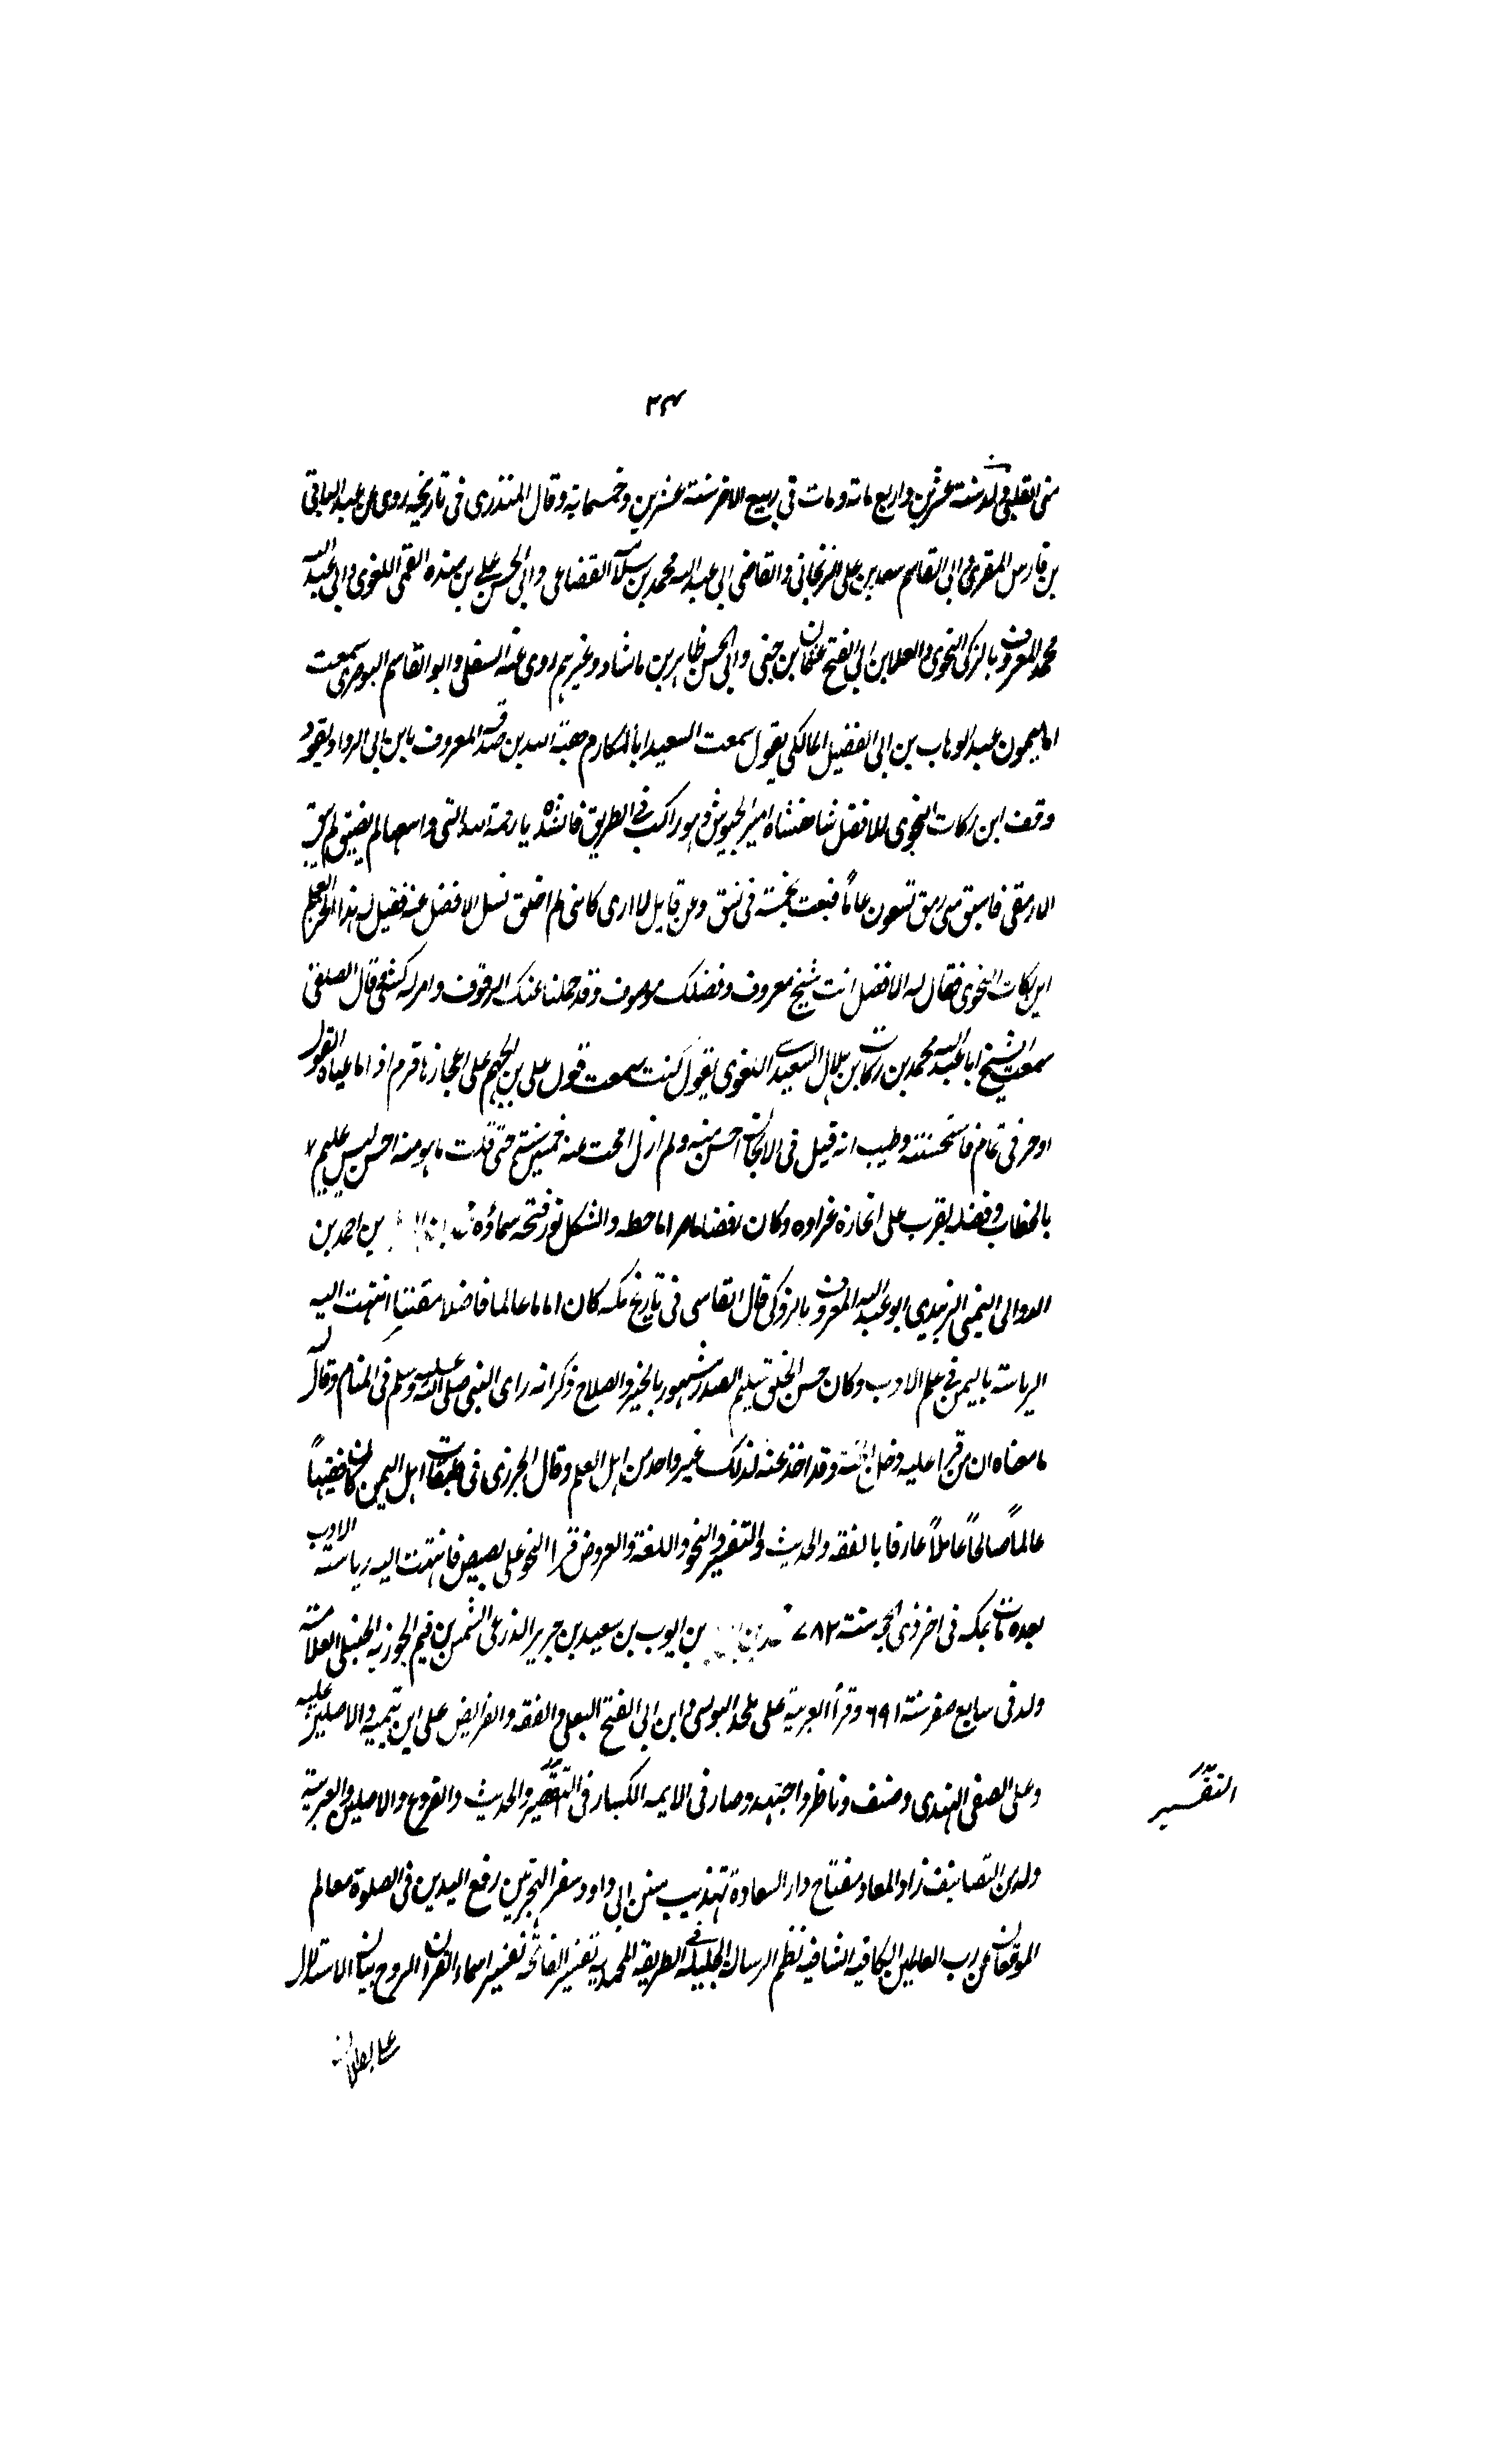 من القلب ولد سنة عشرين واربع مائة ومات فى ربيع الاخر سنة عشرين وخمسمائة وقال المنذرى فى تاريخه روى عن عبد الباقى
بن فارس المقرى وابى القاسم سعد بن على الزنجانى والقاضى ابى عبد الله محمد بن سلامة القضاعى وابى الحسن على بن القمى اللغوى وابى عبد الله
محمد المعروف بالزكى النحوى والعلا بن ابى الفتح عثمان بن جنى وابى الحسن طاهر بن بابشاد وغيرهم روى عنه السلفى وابو القاسم البوصرى سمعت
اباميمون عبد الوهاب بن ابى الفضيل المالكى يقول سمعت السعيد ابا المكارم هبة الله بن صدقة المعروف بابن ابى الرداد يقول
وقف ابن بركات النحوى للافضل شاهنشاه امير الجيوش وهو راكب فى الطريق فانشده يا رحمة الله التى واسعها لم يضيق لم يبق
الا رمقى فاسبق منى رمق تسعون عامًا فنيت بخمسة فى نسق وعن قليل لا ارى كاننى لم اخلق فسل الافضل عنه فقيل له هذا البحر العلم
ابن بركات النحوى فقال له الافضل انت شيخ معروف وفضلك موصوف وقد حملنا عنك الوقوف وامر له بشئ قال السلفى
سمعت الشيخ ابا عبد الله محمد بن بركات بن هلال السعيدى اللغوى يقول كنت سمعت قول على بن الجهم على اعجازها قرم اذا ما عياه القول
اوجز فى تمام فاستحسنته وطيب انه قيل فى الايجاز احسن منه ولم ازل ابحث عنه خمسين سنة حتى قلت ما هو منه احسن ليس عليم
بالخطاب وفضله يقرب على
الدوالى اليمنى الزبيدى ابو عبد الله المعروف بالزوكى قال الفاسى فى تاريخ مكه كان اماما عالما فاضلا مفننا انتهت اليه
الرياسة باليمن فى علم الادب وكان حسن الخلق سليم الصدر مشهور بالخير والصلاح ذكر انه راى النبى صلى الله عليه وسلم فى المنام وقال له
ما معناه ان من قرا عليه دخل الجنة وقد اخذ عنه لذلك غير واحد من اهل العلم وقال الخزرجى فى طبقات اهل اليمن كان فقيهاً
عالماً صالحاً عاملاً عارفا بالفقه والحديث والتفسير والنحو واللغة والعروض قرا النحو على بصيص فانتهت اليه رياسة الادب
بعده مات بمكه فى اخر ذى الحجه سنة ٧٨٢ بن ايوب بن سعيد بن جرير الذرعى الشمس بن قيم الجوزية الحنبلى العلامة
ولد فى سابع صفر سنة ٦٩١ وقرأ العربية على المجد التونسى وابن ابى الفتح البعلى والفقه والفرايض على ابن تيمية والاصلين عليه
وعلى الصفى الهندى وصنف وناظر واجتهد وصار فى الايمه الكبار فى التفسير والحديث والفروع والاصلين والعربية
التفسير
وله من التصانيف زاد المعاد مفتاح دار السعادة تهذيب سنن ابى داود سفر الهجرتين رفع اليدين فى الصلوة معالم
الموقعين عن رب العالمين الكافيه الشافيه نظم الرسالة الجليلة فى الطريقه المحمديه تفسير الفاتحه تفسير اسماء القران الروح بيان الاستدلال
على بطلان